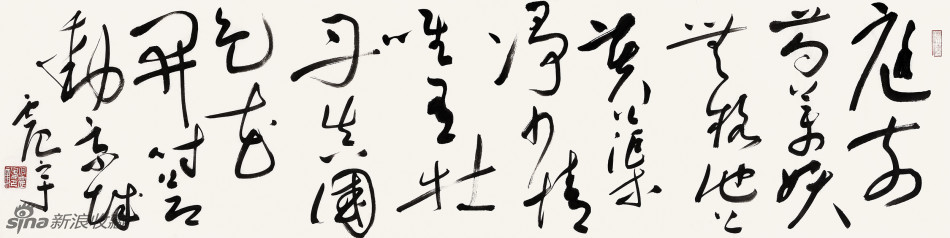 庭前
芍药妖
无格池上
芙蕖
净少情
唯有牡
丹真国
色花
开时节
动京城
sina新浪收藏